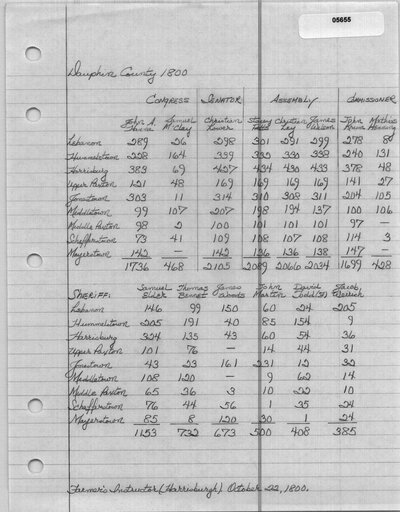 05655
Dauphin County 1800
CONGRESS SENATOR ASSEMBLY COMMISSIONER
John A. Samuel Christian Stacey Christian James John Mathias
Hanna Maclay Lower Potts Ley Wilson Henning
Lebanon 289 26 298 301 291 299 278 8
Hummelstown 228 164 339 332 330 338 240 131
Harrisburg 383 69 427 434 430 433 378 48
Upper Paxton 121 48 169 169 169 169 141 27
Jonestown 303 11 314 310 308 311 204 105
Middletown 99 107 207 198 194 137 100 106
Middle Paxton 98 2 100 101 101 101 97 —
Schafferstown 73 41 109 108 107 108 114 3
Mayerstown 142 — 142 136 136 138 147 —
1736 468 2105 2089 2066 2034 1699 428
Samuel Thomas James John David Jacob
SHERIFF: Elder Bennet Woods Morton Todd(SP)
Lebanon 146 99 150 60 24 205
Hummelstown 205 191 40 85 154 9
Harrisburg 324 135 43 60 54 36
Upper Paxton 101 76 — 14 44 31
Jonestown 43 23 161 231 12 32
Middletown 108 120 — 9 62 14
Middle Paxton 65 36 3 10 22 10
Schafferstown 76 44 56 1 35 24
Mayerstown 85 8 120 30 1 24
1153 732 673 500 408 385
Farmer's Instructor (Harrisburgh). October 22, 1800.